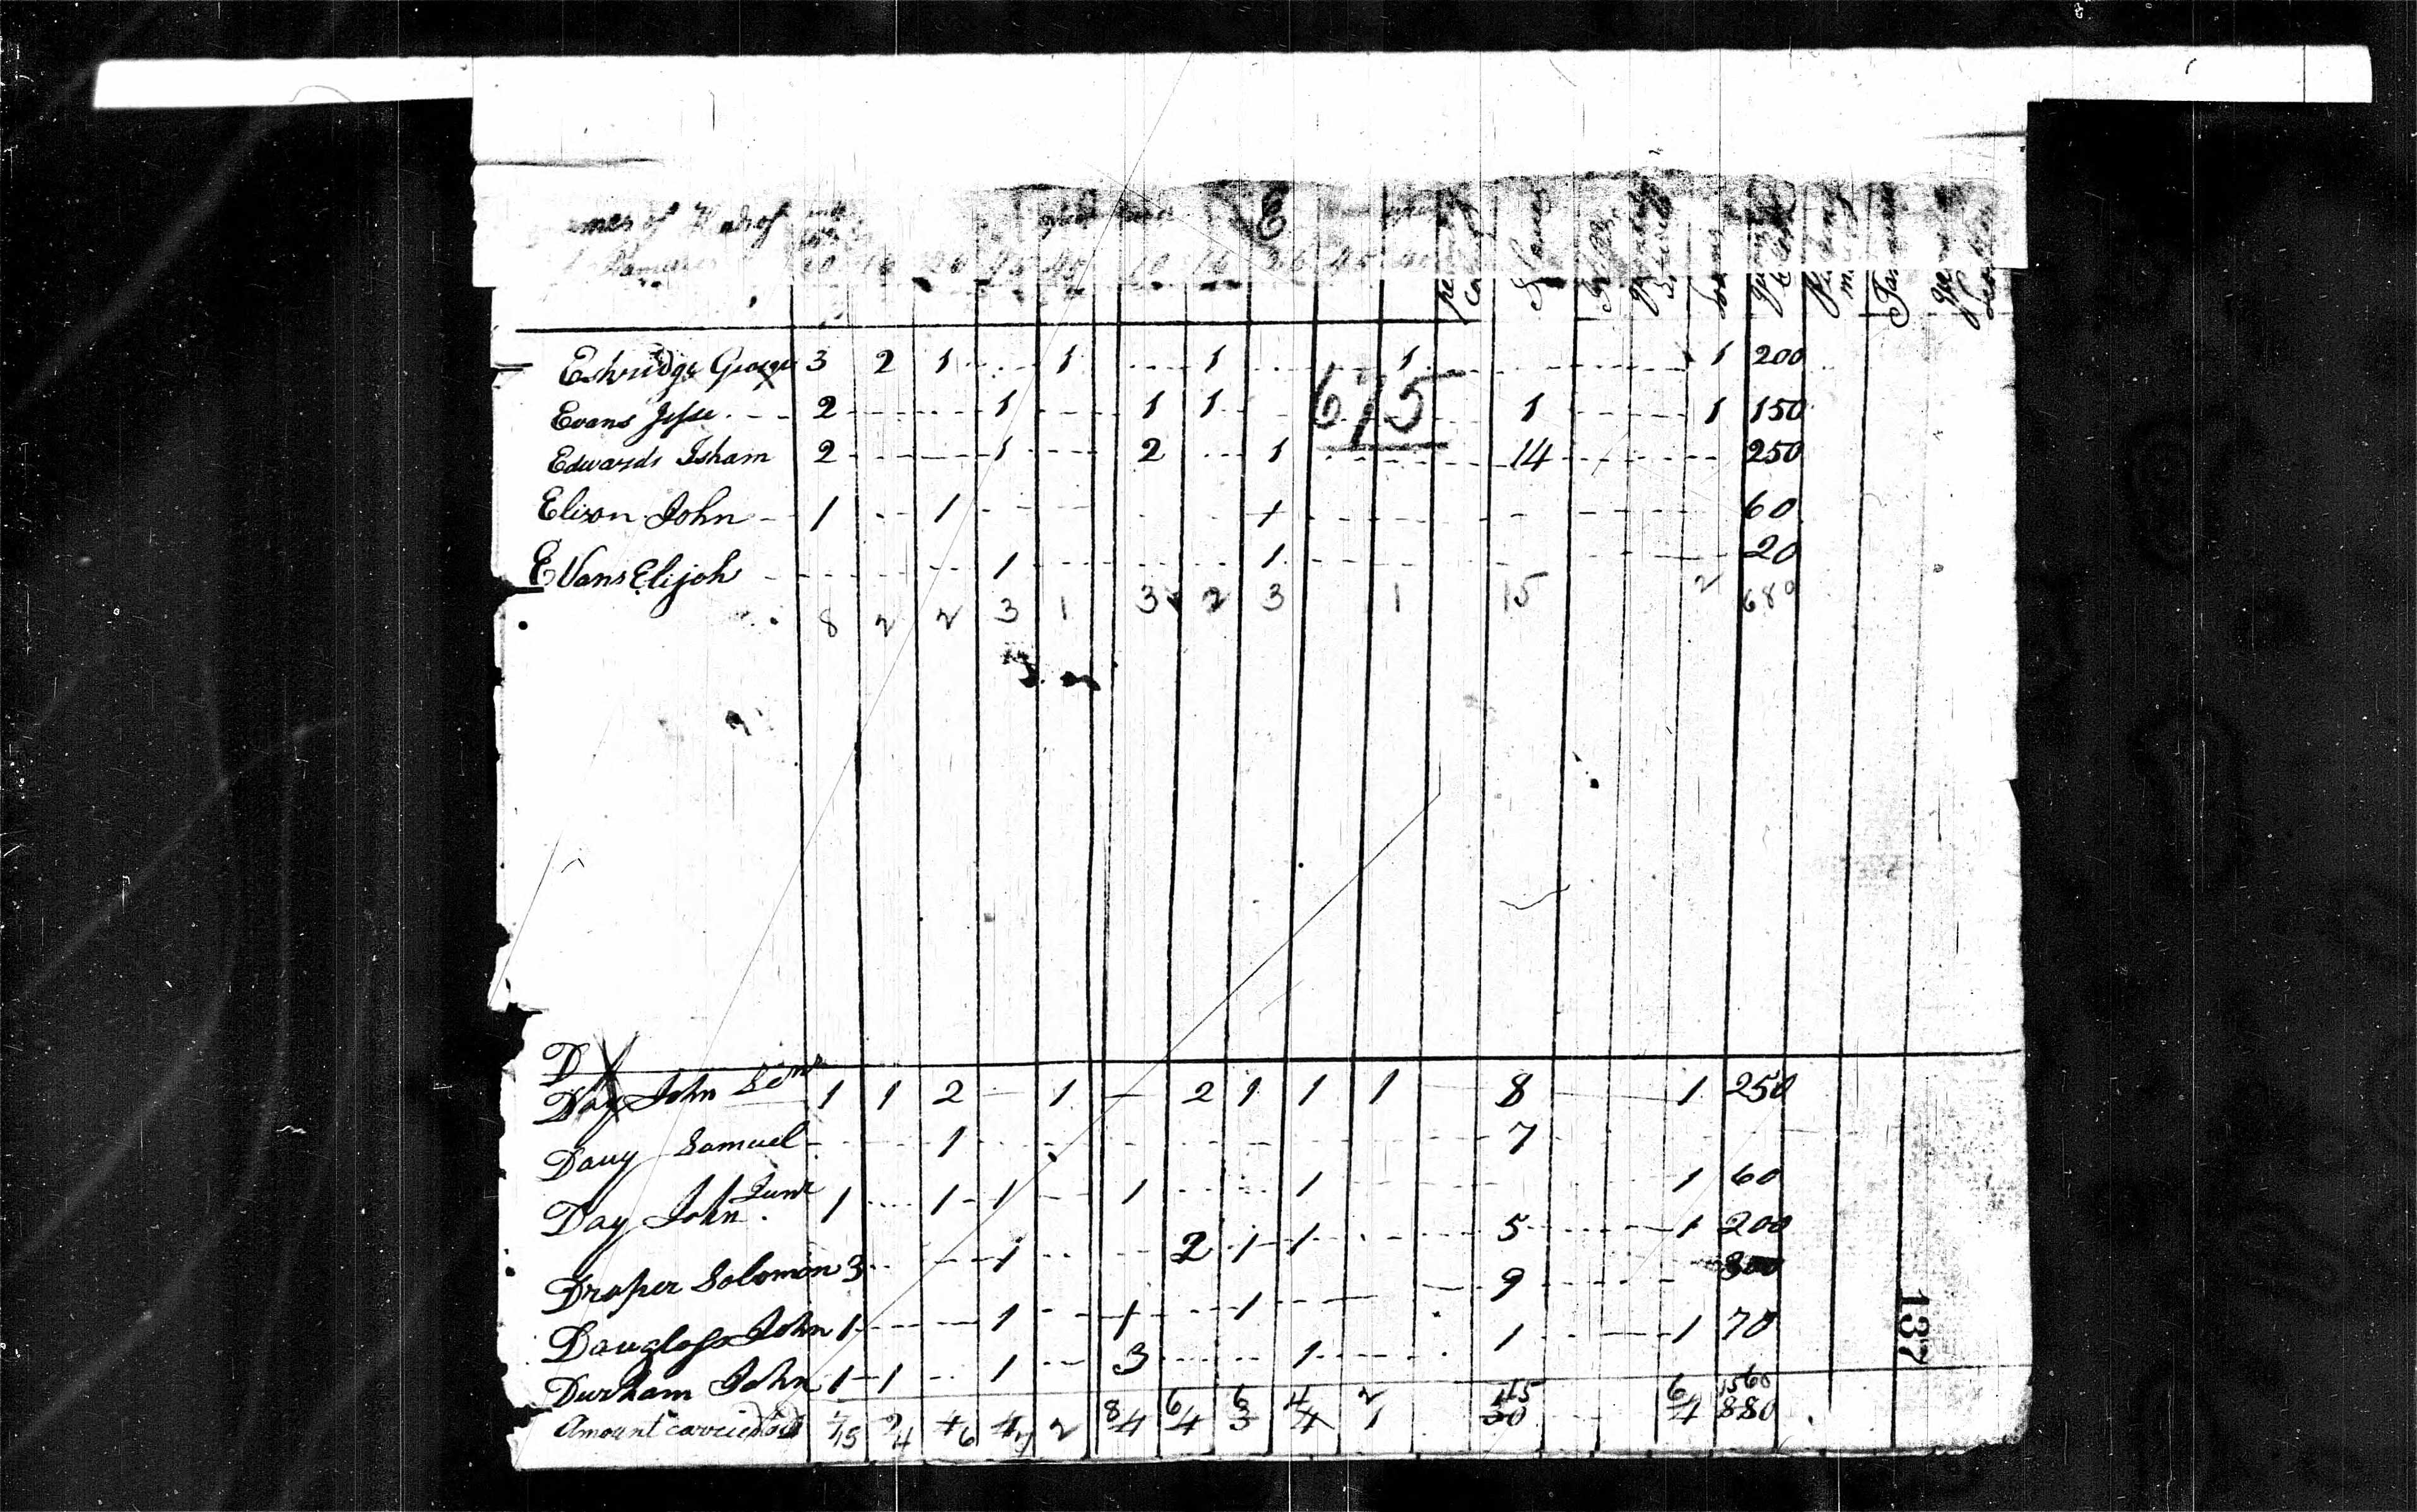 E
Names of Heads of
Families 10 16 26 45 45 10 16 26 45 45 Slaves
Eskridge George 3 2 1 1 1 1 1 200
Evans Jesse 2 1 1 1 1 1 150
675
Edwards Isham 2 1 2 1 14 250
Elison John 1 1 1 60
Evans Elijoh 1 1 20
8 2 2 3 1 3 2 3 1 15 2 680
D
Day John Senr 1 1 2 1 2 1 1 1 8 1 250
Dauy Samuel 1 7
Day John Junr 1 1 1 1 1 1 60
Draper Solomon 3 1 2 1 1 5 1 200
Dauglass John 1 1 1 1 9 300
Durham John 1 1 1 3 1 1 1 70
8 6 6 4 2 45 6 1560
Amount carried 15 4 6 7 2 4 4 3 4 1 30 4 880
137